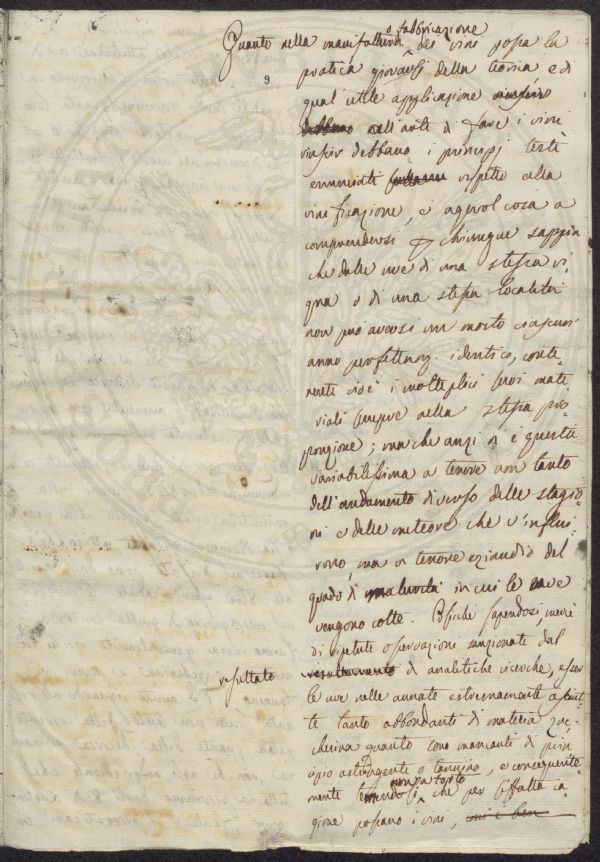 o fabbricazione
Quanto nella manifattura dei vini possa la
9
pratica giovarsi della teoria e di
qual utile applicazione
debbano nell'arte di fare i vini
riuscir debbano i principj testè
enunciati rispetto alla
vinificazione, è agevol cosa a
comprendersi chiunque sappia
che dalle uve di una stessa vi-
gna o di una stessa località
non può aversi un mosto ciascun
anno perfettam. identico, conte-
nente cioè i molteplici suoi mate-
riali sempre nella stessa pro-
porzione; ma che anzi vi è questa
variabilissima a tenore non tanto
dell'andamento diverso delle stagio-
ni e delle meteore che v'influi-
rono, ma a tenore eziandio del
grado di maturità in cui le uve
vengono colte. Posciachè sapendosi, mercè
di ripetute osservazioni sanzionate dal
resultato
di analitiche ricerche, esser
le uve nelle annate estremamente asciut-
te tanto abbondanti di materia zuc-
cherina quanto sono mancanti di prin-
cipio astringente o tannino, e conseguente-
non a torto
mente temendosi che per siffatta ca-
gione possano i vini, com'è ben